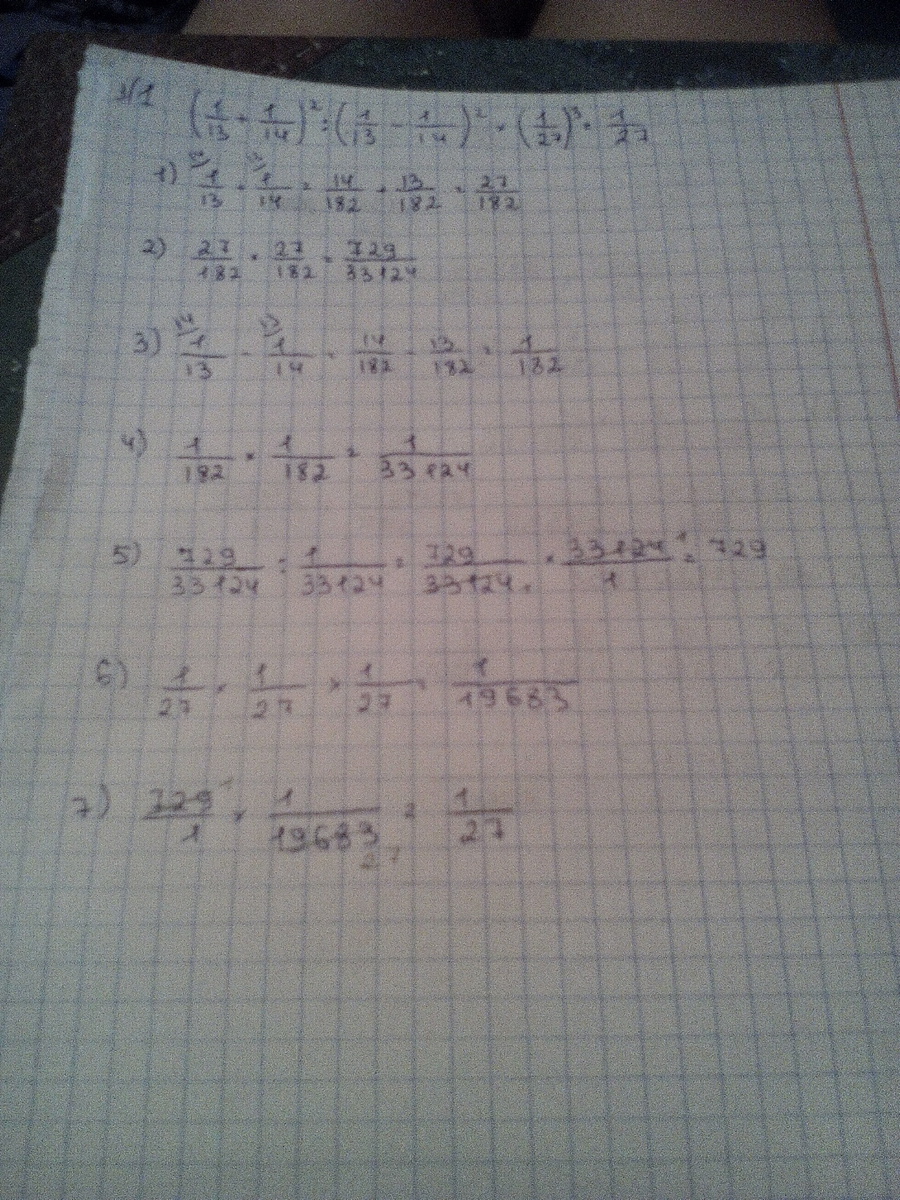 №1 (1/13 + 1/14)² : (1/13 - 1/14)² · (1/27)³ = 1/27
1) 1/13 + 1/14 = 14/182 + 13/182 = 27/182
2) 27/182 · 27/182 = 729/33124
3) 1/13 - 1/14 = 14/182 - 13/182 = 1/182
4) 1/182 · 1/182 = 1/33124
5) 729/33124 : 1/33124 = 729/33124 · 33124/1 = 729
6) 1/27 × 1/27 × 1/27 = 1/19683
7) 729/1 × 1/19683 = 1/27